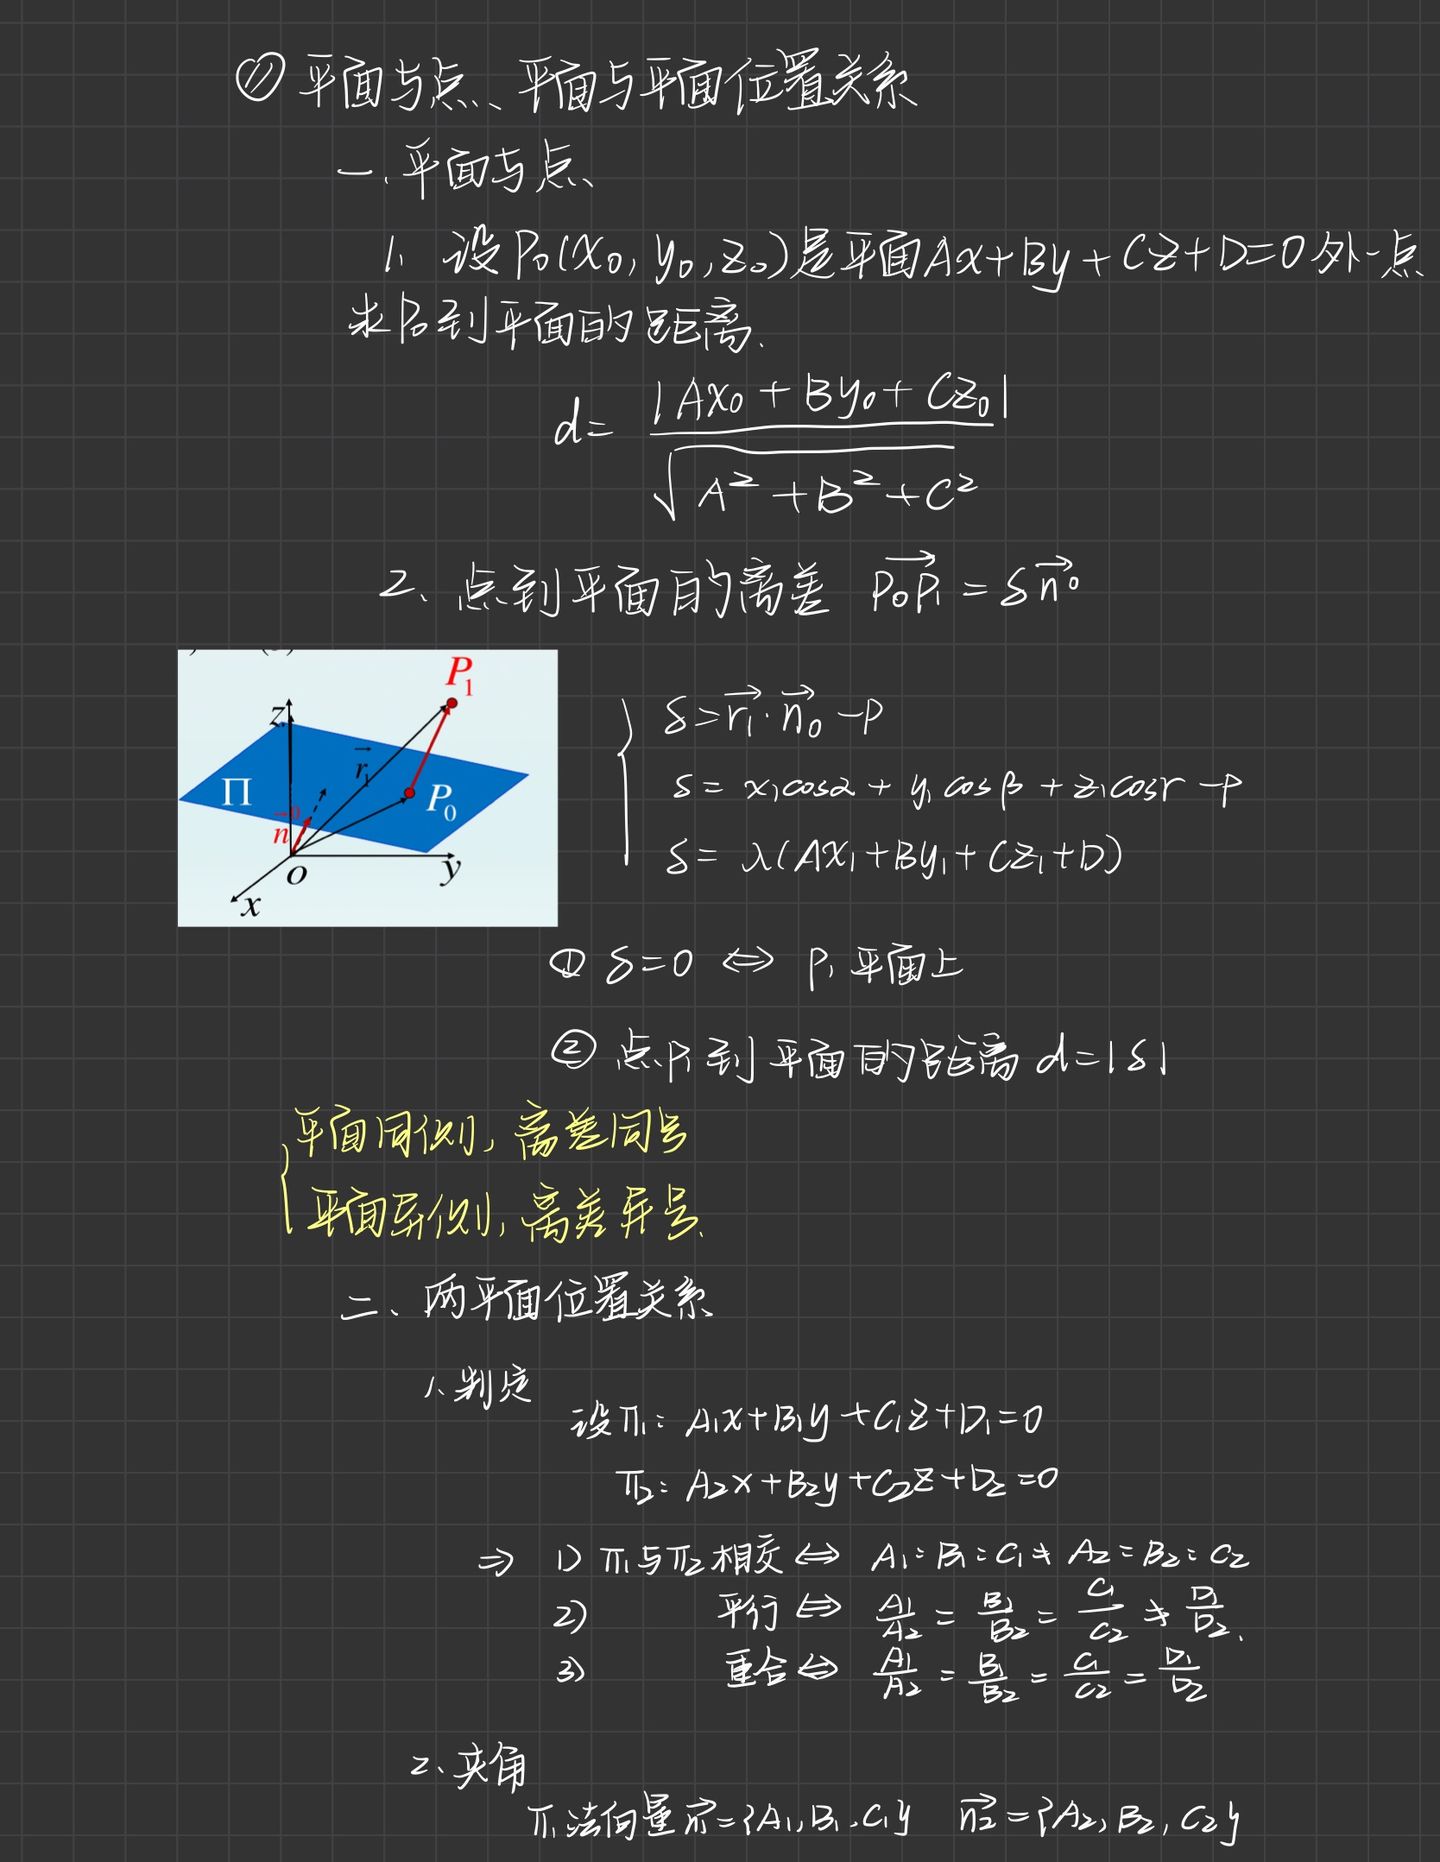 ⑪ 平面与点、平面与平面位置关系
一、平面与点
1、设P₀(x₀, y₀, z₀)是平面Ax+By+Cz+D=0外一点
求P₀到平面的距离.
d= |Ax₀+By₀+Cz₀| / √A²+B²+C²
2、点到平面的离差 P₀P₁→ = δn→⁰
P₁
z
r₁→
Π
P₀
n→⁰
o
y
x
δ=r₁→·n→₀-p
δ= x₁cosα + y₁cosβ + z₁cosr -p
δ= λ(Ax₁+By₁+Cz₁+D)
① δ=0 ⇔ P₁平面上
② 点P₁到平面的距离 d=|δ|
平面同侧, 离差同号
平面异侧, 离差异号.
二、两平面位置关系
1、判定
设π₁: A₁x+B₁y+C₁z+D₁=0
π₂: A₂x+B₂y+C₂z+D₂=0
⇒ 1) π₁与π₂相交 ⇔ A₁:B₁:C₁≠A₂:B₂:C₂
2) 平行 ⇔ A₁/A₂ = B₁/B₂ = C₁/C₂ ≠ D₁/D₂.
3) 重合 ⇔ A₁/A₂ = B₁/B₂ = C₁/C₂ = D₁/D₂
2、夹角
π₁法向量n→={A₁,B₁,C₁} n₂→={A₂,B₂,C₂}